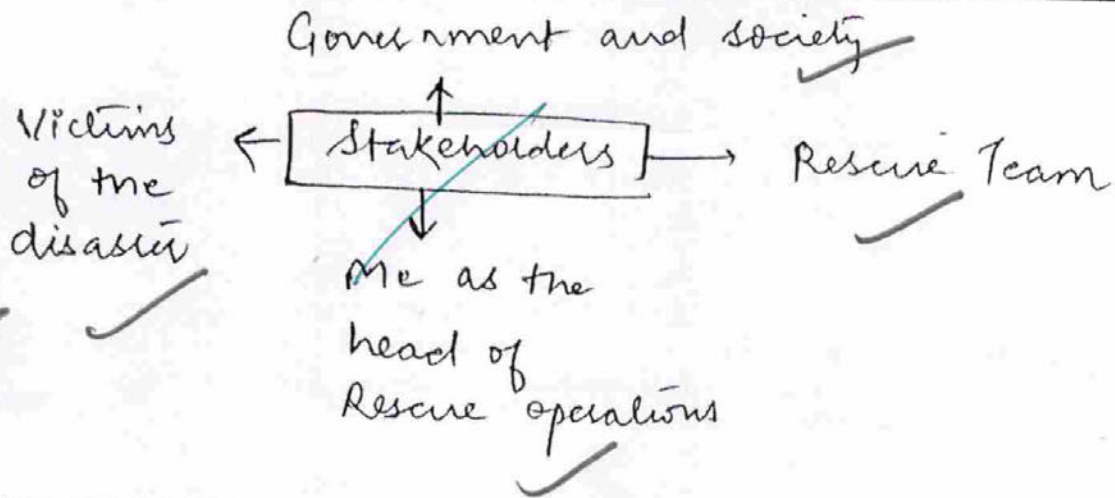 Government and society
Victims
of the
disaster
Stakeholders
Rescue Team
Me as the
head of
Rescue operations